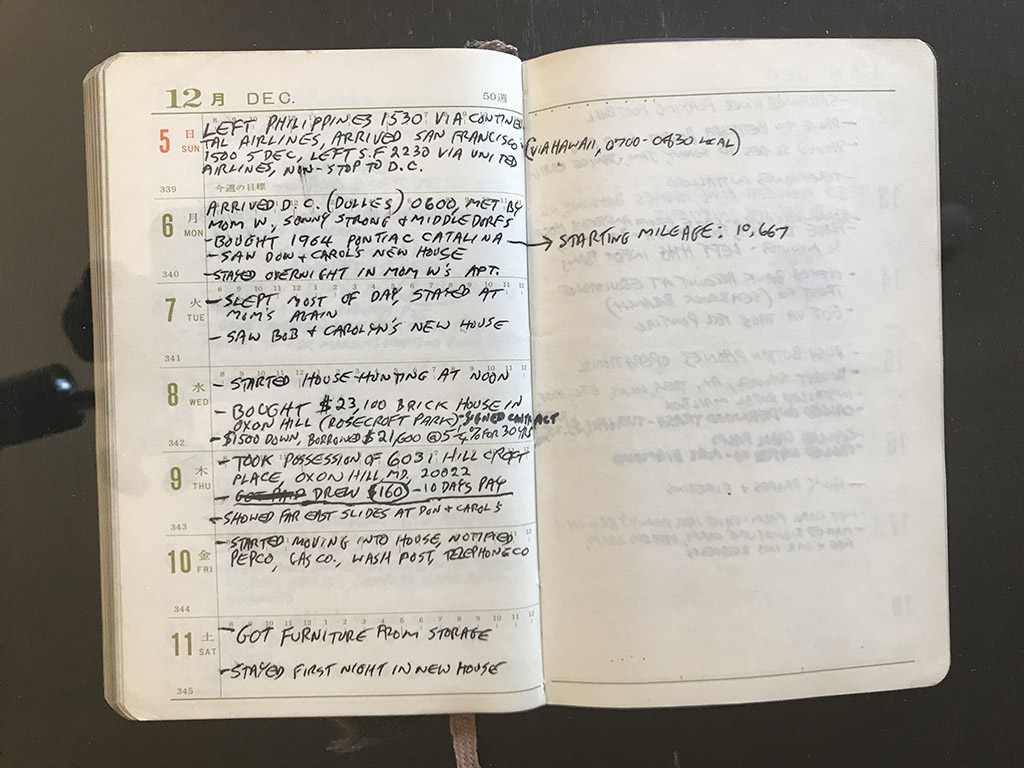 12月 DEC. 50週
5 日 SUN
LEFT PHILIPPINES 1530 VIA CONTINEN
TAL AIRLINES, ARRIVED SAN FRANCISCO
(VIA HAWAII, 0700-0830 LOCAL)
1500 5 DEC, LEFT S.F 2230 VIA UNITED
AIRLINES, NON-STOP TO D.C.
339 今週の目標
6 月 MON
ARRIVED D.C. (DULLES) 0600, MET BY
MOM W, SONNY STRONG & MIDDLEDORFS
-BOUGHT 1964 PONTIAC CATALINA → STARTING MILEAGE: 10,667
-SAW DON & CAROL'S NEW HOUSE
340 -STAYED OVERNIGHT IN MOM W'S APT.
7 火 TUE
-SLEPT MOST OF DAY, STAYED AT
MOM'S AGAIN
-SAW BOB & CAROLYN'S NEW HOUSE
341
8 水 WED
-STARTED HOUSE-HUNTING AT NOON
-BOUGHT $23,100 BRICK HOUSE IN
OXON HILL (ROSECROFT PARK), SIGNED CONTRACT
342 -$1500 DOWN, BORROWED $21,600 @5 1/4% FOR 30 YRS
9 木 THU
-TOOK POSSESSION OF 6031 HILL CROFT
PLACE, OXON HILL MD. 20022
-GOT PAID DREW $160 -10 DAYS PAY
343 -SHOWED FAR EAST SLIDES AT DON & CAROL'S
10 金 FRI
-STARTED MOVING INTO HOUSE, NOTIFIED
PEPCO, GAS CO., WASH POST, TELEPHONE CO
344
11 土 SAT
-GOT FURNITURE FROM STORAGE
-STAYED FIRST NIGHT IN NEW HOUSE
345